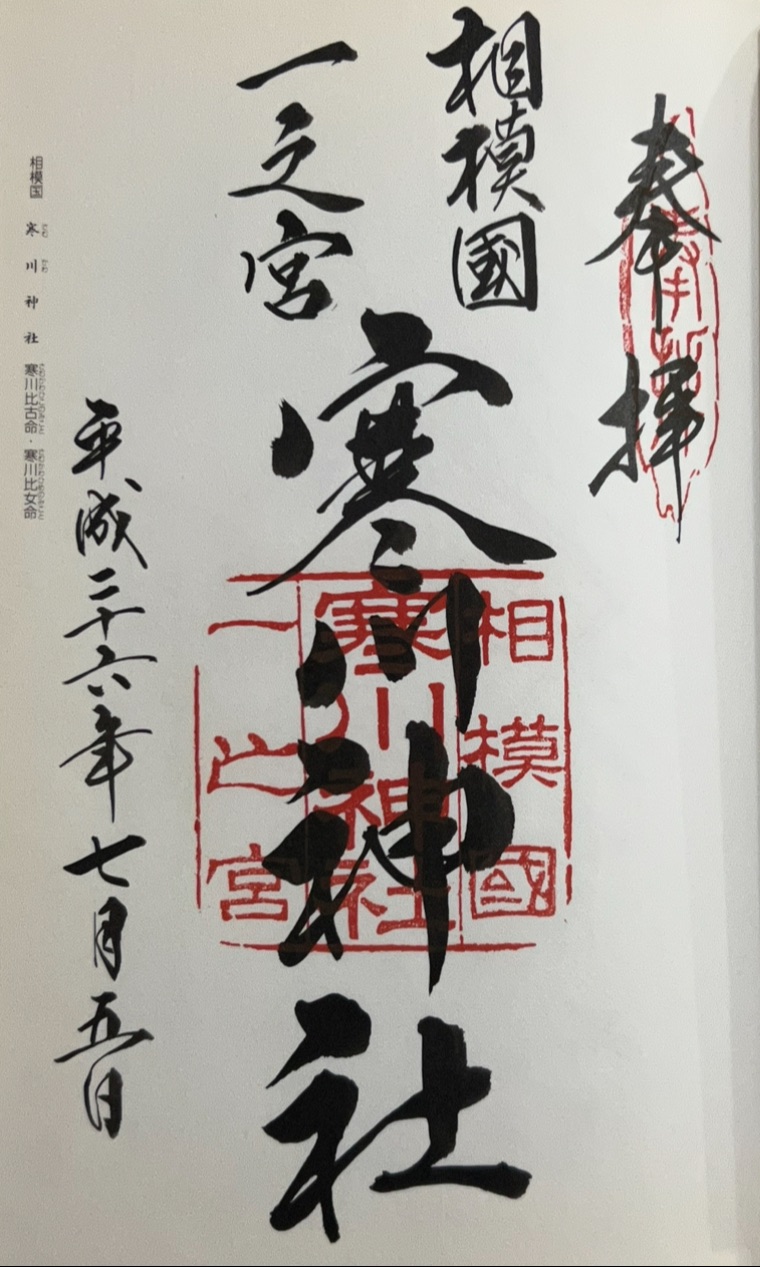 奉拝
奉拝
相模國
一之宮
寒川神社
相模國
寒川神社
一之宮
平成二十六年七月五日
相模国 寒川神社 寒川比古命・寒川比女命